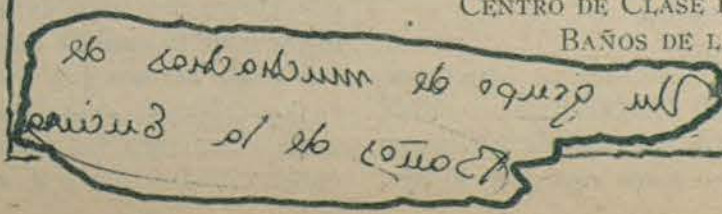 CENTRO DE CLASE
BAÑOS DE L
Un Grupo de muchachos de
Baños de la Encina